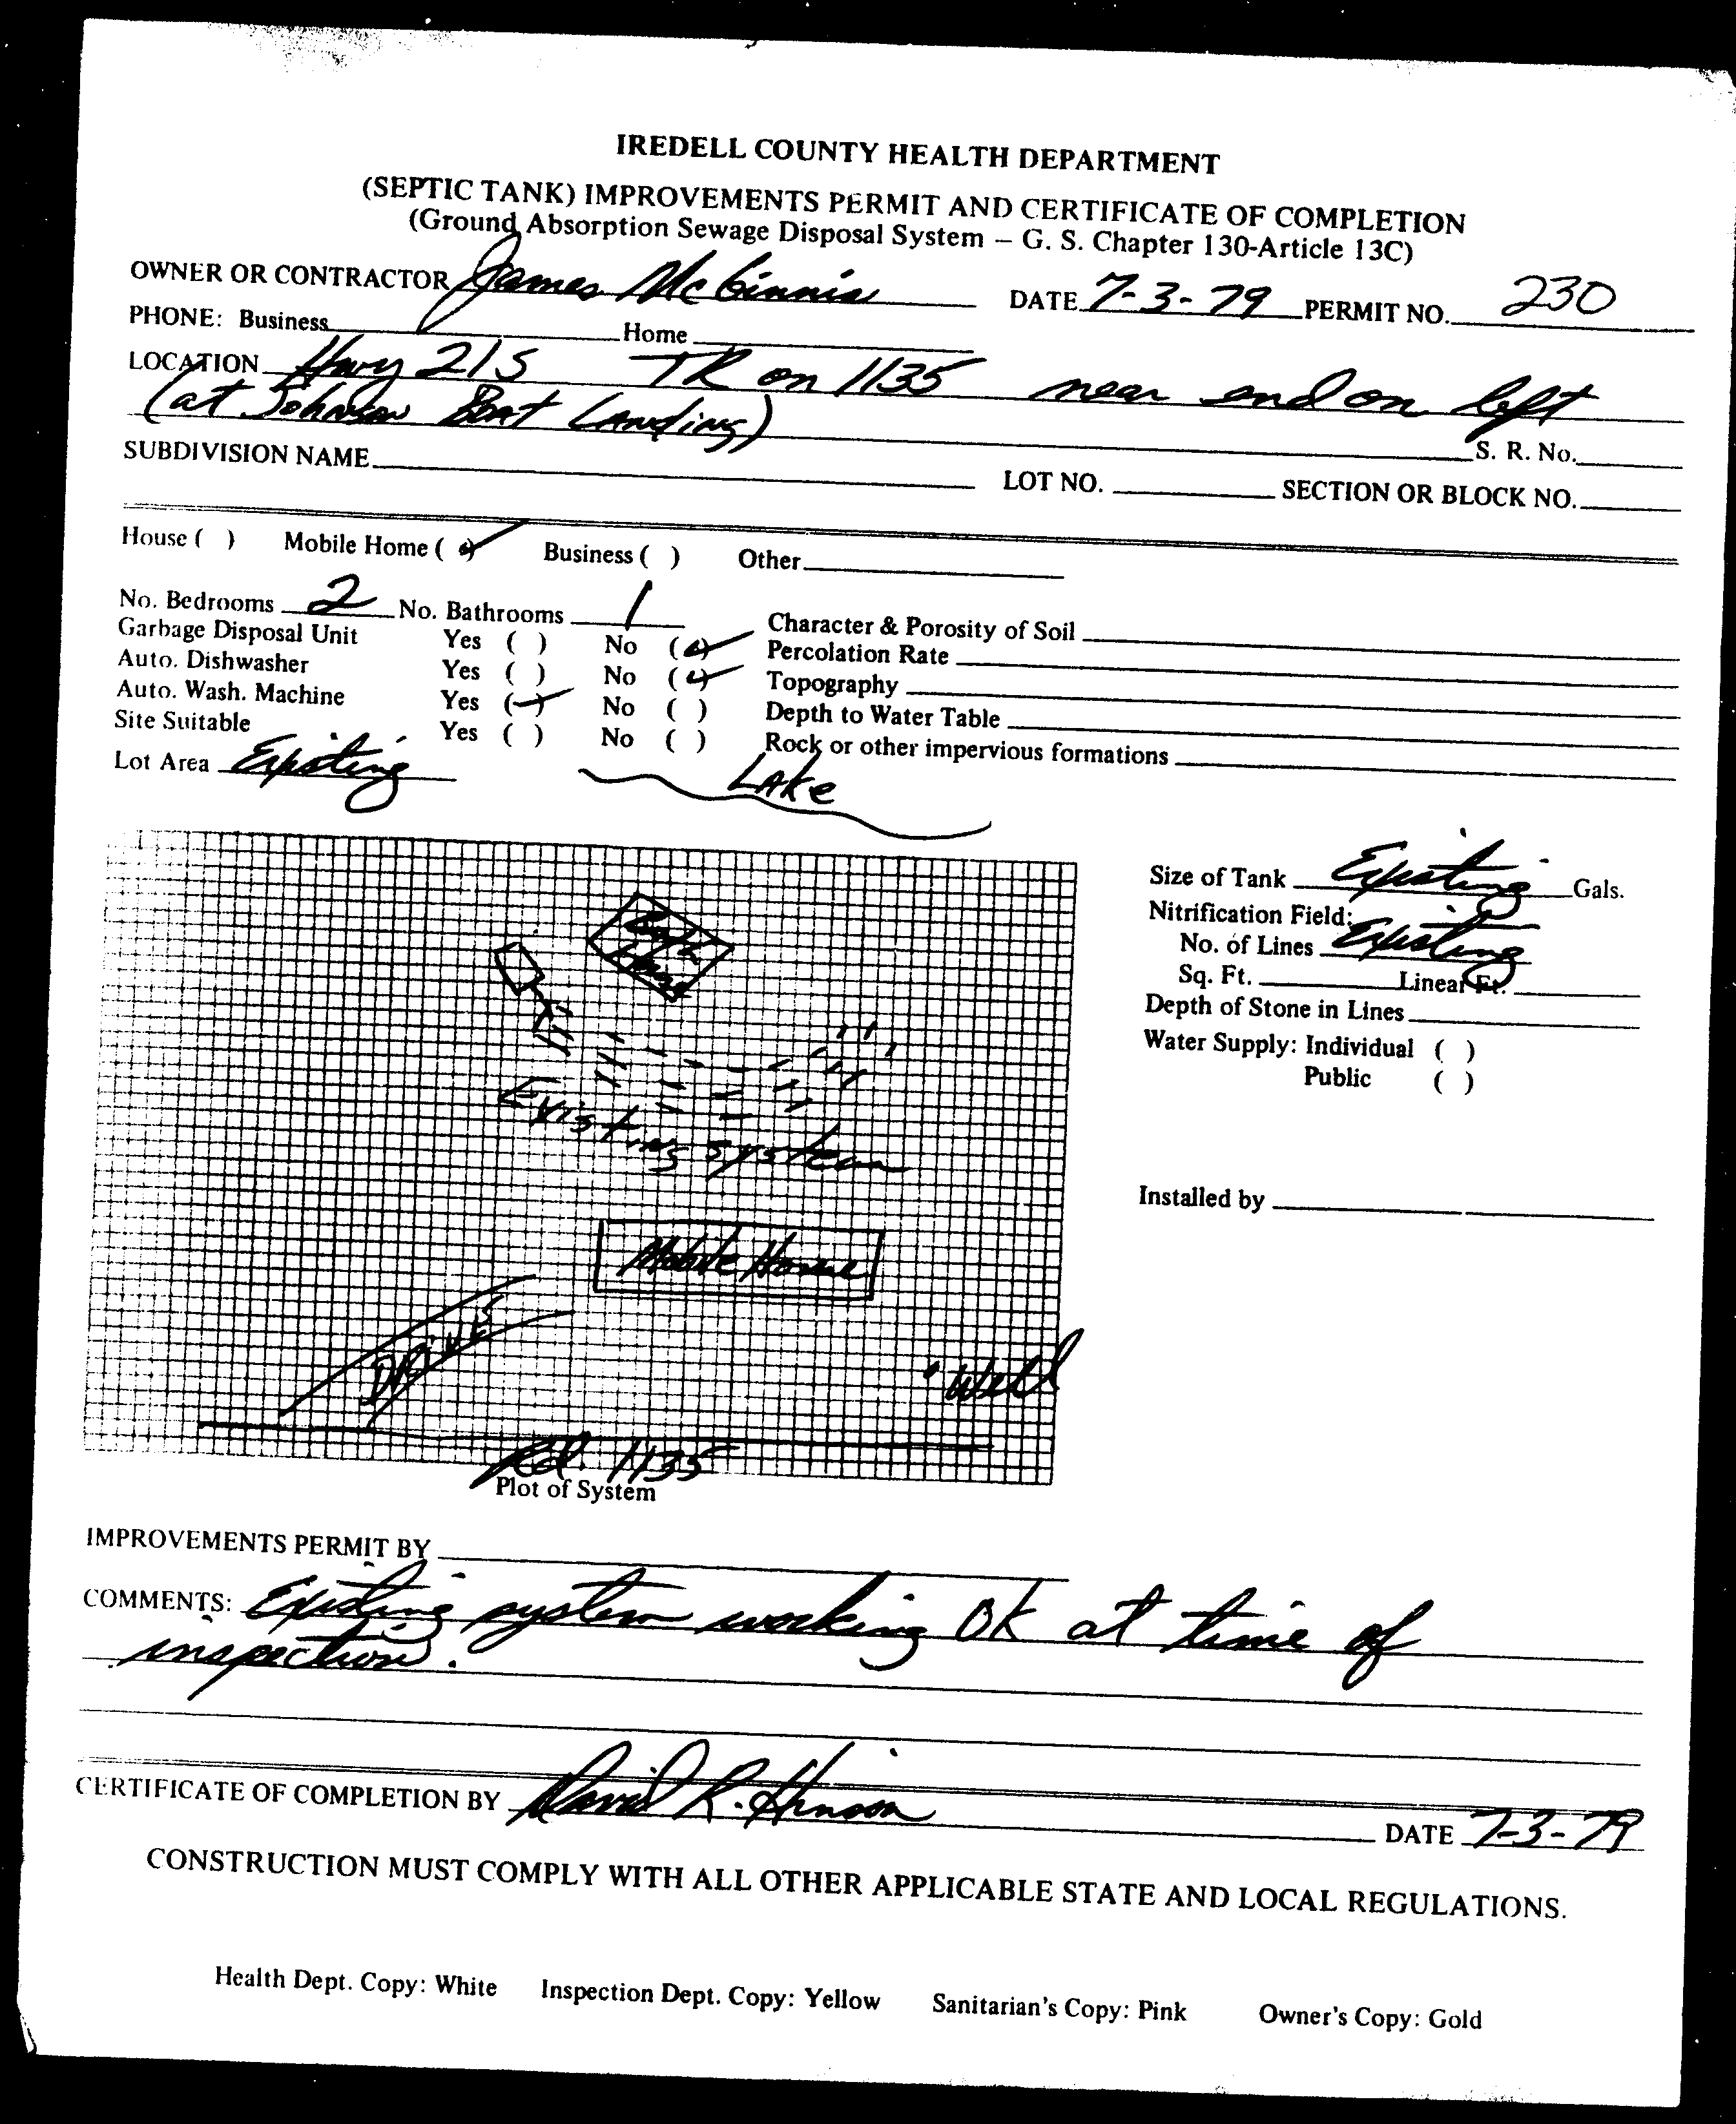 IREDELL COUNTY HEALTH DEPARTMENT
(SEPTIC TANK) IMPROVEMENTS PERMIT AND CERTIFICATE OF COMPLETION
(Ground Absorption Sewage Disposal System – G. S. Chapter 130-Article 13C)
OWNER OR CONTRACTOR James McGinnis DATE 7-3-79 PERMIT NO. 230
PHONE: Business Home
LOCATION Hwy 21 S TR on 1135 near end on left
(at Johnson Boat Landing)
S. R. No.
SUBDIVISION NAME LOT NO. SECTION OR BLOCK NO.
House ( ) Mobile Home (✓) Business ( ) Other
No. Bedrooms 2 No. Bathrooms 1 Character & Porosity of Soil
Garbage Disposal Unit Yes ( ) No (✓) Percolation Rate
Auto. Dishwasher Yes ( ) No (✓) Topography
Auto. Wash. Machine Yes (✓) No ( ) Depth to Water Table
Site Suitable Yes ( ) No ( ) Rock or other impervious formations
Lot Area Existing
LAKe
Size of Tank Existing Gals.
Nitrification Field:
No. of Lines Existing
Sq. Ft. Linear Ft.
Depth of Stone in Lines
Water Supply: Individual ( )
Public ( )
Existing system
Installed by
Mobile Home
DRIVE
Well
Rd. 1135
Plot of System
IMPROVEMENTS PERMIT BY
COMMENTS: Existing system working OK at time of
inspection.
CERTIFICATE OF COMPLETION BY David R. Hinson
DATE 7-3-79
CONSTRUCTION MUST COMPLY WITH ALL OTHER APPLICABLE STATE AND LOCAL REGULATIONS.
Health Dept. Copy: White Inspection Dept. Copy: Yellow Sanitarian's Copy: Pink Owner's Copy: Gold